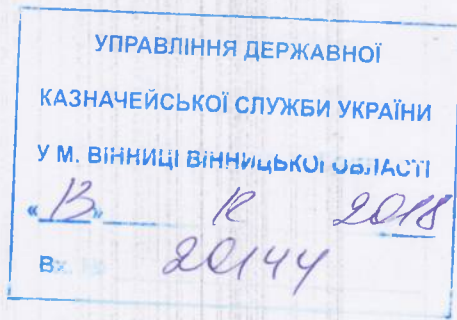 УПРАВЛІННЯ ДЕРЖАВНОЇ
КАЗНАЧЕЙСЬКОЇ СЛУЖБИ УКРАЇНИ
У М. ВІННИЦІ ВІННИЦЬКОЇ ОБЛАСТІ
«13» 12 2018
Вх. № 20144